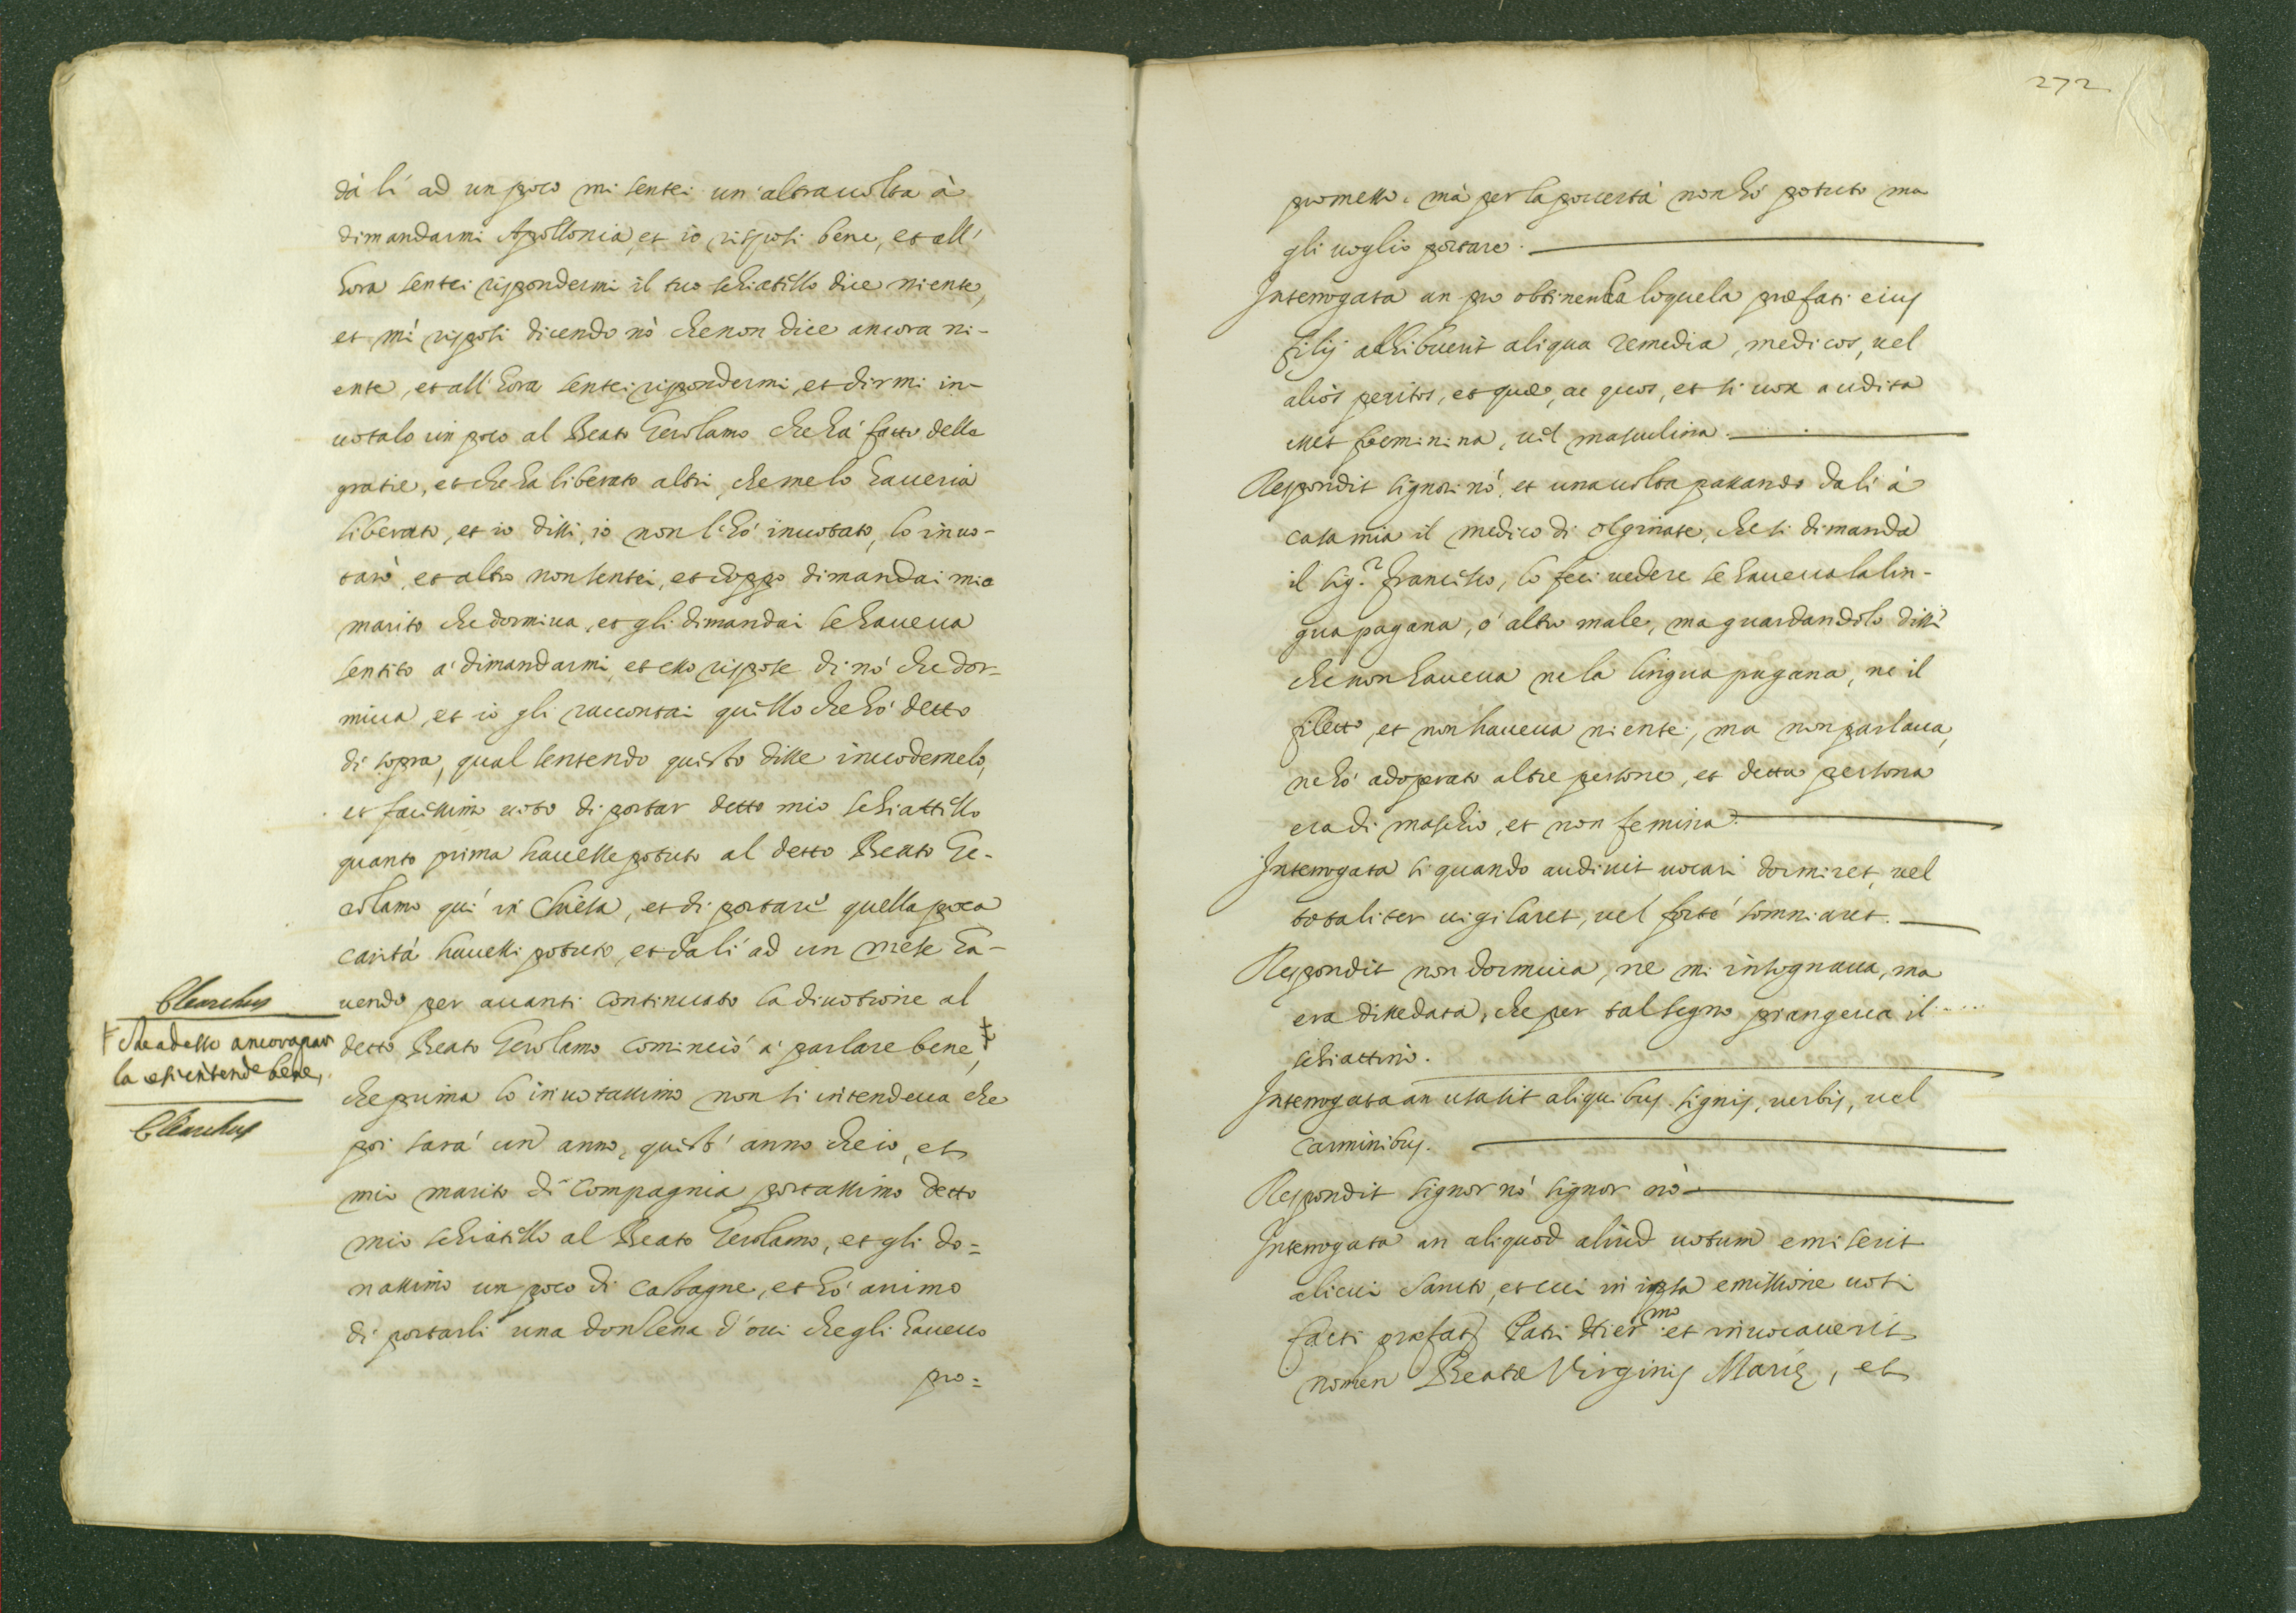 dà lí ad un poco mi sentei un'altra uolta à
dimandarmi Apollonia, et io risposi bene, et all'
hora sentei rispondermi il tuo schiatello dice niente,
et mi risposi dicendo nò che non dice ancora ni-
ente, et all'hora sentei rispondermi, et dirmi in-
uotalo un poco al Beato Gerolamo che hà fatto delle
gratie, et che ha liberato altri, che me lo haueria
liberato, et io dissi, io non l'hò inuotato, lo inuo-
tarò, et altro non sentei, et doppo dimandai mio
marito che dormiua, et gli dimandai se haueua
sentito a' dimandarmi, et esso rispose di nò che dor-
miua, et io gli raccontai quello che hò detto
di sopra, qual sentendo questo disse inuodemelo,
et facessimo uoto di portar detto mio schiattello
quanto prima hauesse potuto al detto Beato Ge-
rolamo quì in Chiesa, et di portare quella poca
carità hauessi potuto, et da lí ad un mese ha-
uendo per auanti continuato la diuotione al
detto Beato Gerolamo cominciò a' parlare bene, ‡
che prima lo inuotassimo non si intendeua che
poi sarà un anno, quest'anno che io, et
mio marito di compagnia portassimo detto
mio schiatello al Beato Gerolamo, et gli do=
nassimo un poco di castagne, et hò animo
di portarli una donsena d'oui che gli haueuo
pro=
Clearchus
‡ che adesso ancora par
la et si intende bene,
Clearchus
272
promesso, mà per la pouertà non hó potuto ma
gli uoglio portare.
Interrogata an pro obtinenda loquela præfati eius
filij adhibuerit aliqua remedia, medicos, uel
alios peritos, et quæ, ac quos, et si uox audita
esset foeminina, uel masculina.
Respondit signori nò, et una uolta passando da lí à
casa mia il medico di Olginate, che si dimanda
il sig.r Francesco, lo feci uedere se haueua la lin-
gua pagana, ó altro male, ma guardandolo disse
che non haueua ne la lingua pagana, ne il
filetto, et non haueua niente, ma non parlaua,
ne hó adoperato altre persone, et detta persona
era di maschio, et non femina.
Interrogata si quando audiuit uocari dormiret, uel
totaliter uigilaret, uel forte somniaret.
Respondit non dormiua, ne mi insognaua, ma
era dissedata, che per tal segno piangeua il
schiattino.
Interrogata an usa sit aliquibus signis, uerbis, uel
carminibus.
Respondit signor nó signor nò
Interrogata an aliquod aliud uotum emiserit
alicui Sancto, et cui in ipsa emissione uoti
facti præfato Patri Hier.mo et inuocauerit
nomen Beatæ Virginis Marię, et